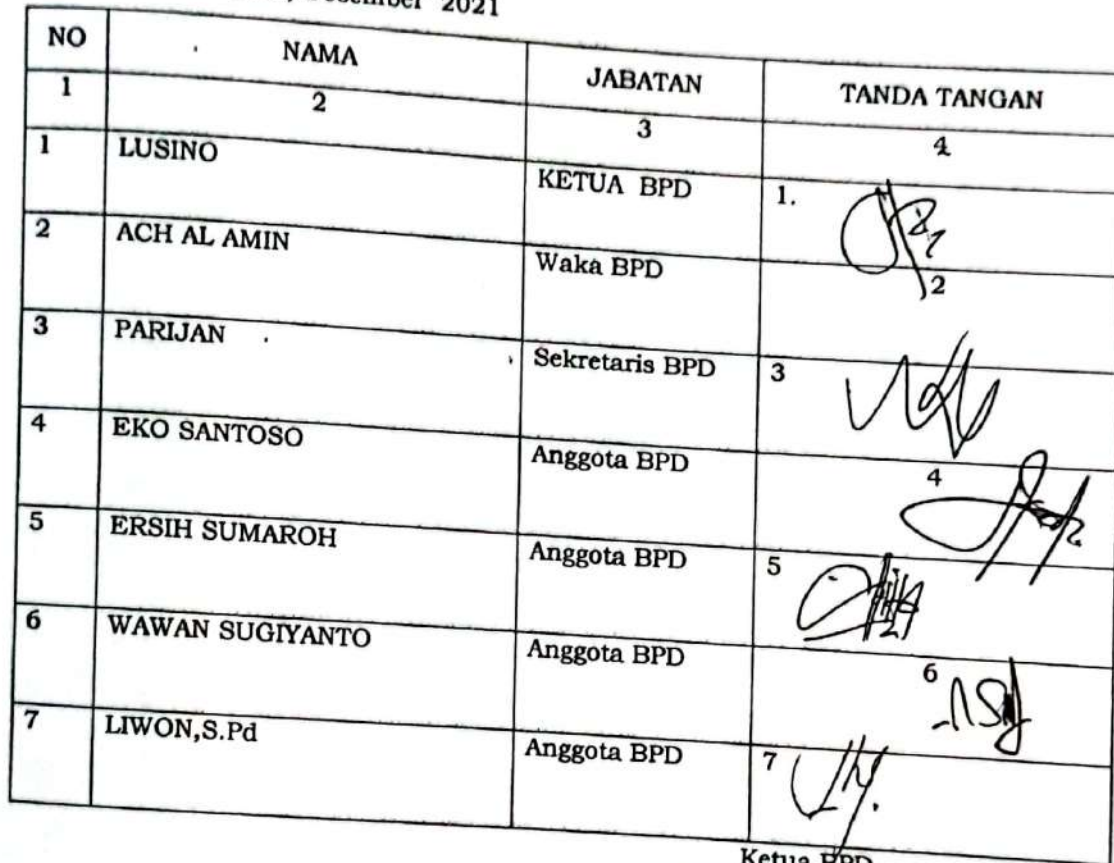 Desember 2021
NO NAMA JABATAN TANDA TANGAN
1 2 3 4
1 LUSINO KETUA BPD 1.
2 ACH AL AMIN Waka BPD 2
3 PARIJAN Sekretaris BPD 3
4 EKO SANTOSO Anggota BPD 4
5 ERSIH SUMAROH Anggota BPD 5
6 WAWAN SUGIYANTO Anggota BPD 6
7 LIWON,S.Pd Anggota BPD 7
Ketua BPD